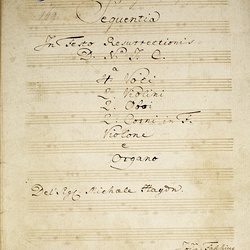 Sequentia
In Festo Resurrectionis
D. N. J. C.
4 Voci
2. Violini
2. Oboi
2. Corni in F.
Violone
e
Organo
Del Sig. Michale Haydn.